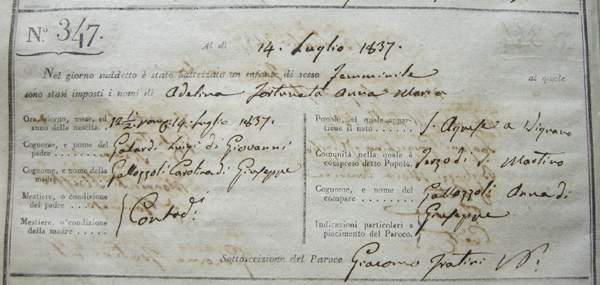 N.° 347.
Al dì 14. Luglio 1837.
Nel giorno suddetto è stato battezzato un infante di sesso femminile al quale
sono stati imposti i nomi di Adelina Fortunata Anna Maria
Ora, giorno, mese, ed anno della nascita. 14. Luglio 1837.
Cognome, e nome del padre Luigi di Giovanni
Cognome, e nome della madre Gallozzoli Carolina di Giuseppe
Mestiere, o condizione del padre
Mestiere, o condizione della madre Contad.i
Popolo, al quale appartiene il nato S. Agnese a
Comunità nella quale è compreso detto Popolo. Terzo di S. Martino
Cognome, e nome del compare Gallozzoli Anna di Giuseppe
Indicazioni particolari a piacimento del Paroco.
Sottoscrizione del Paroco Giacomo Fratini